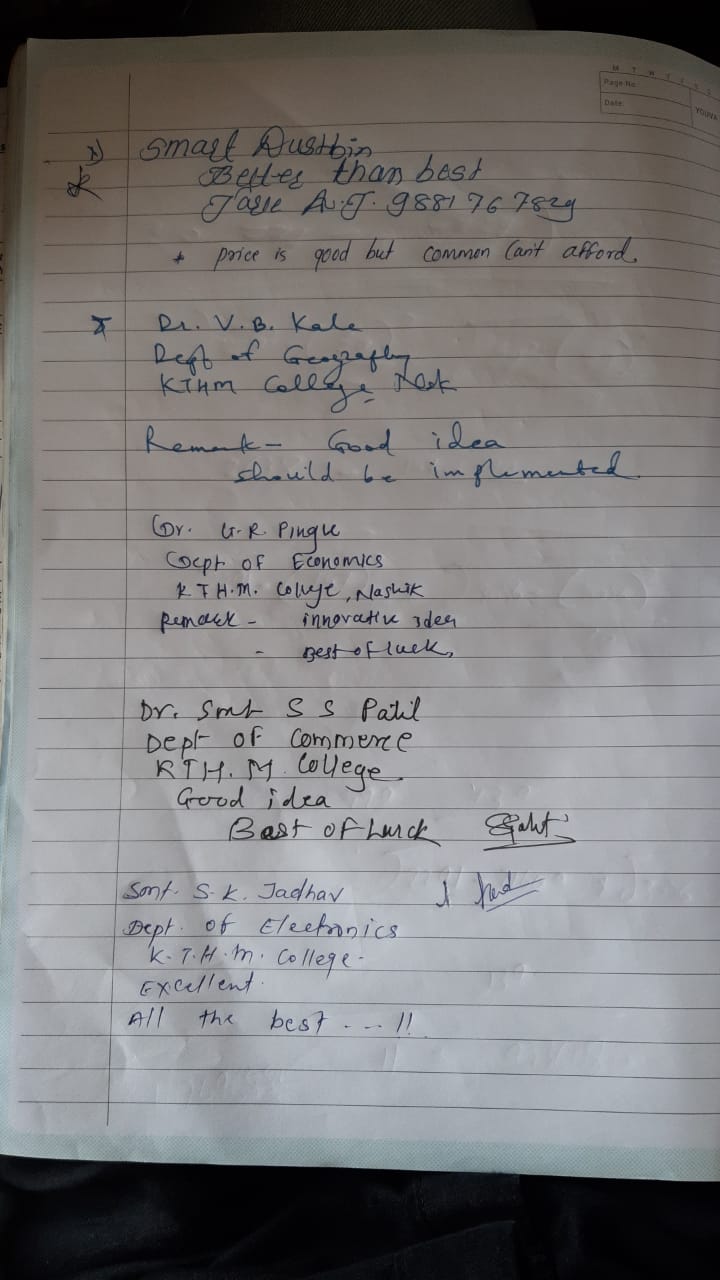 M T W T F S S
Page No.:
Date:
YOUVA
Smart Dustbin
Better than best
A.J. 9881 76 7829
* price is good but common Can't afford.
* Dr. V. B. Kale
Dept of Geography
KTHM College
Remark - Good idea
should be implemented.
Dr. G. R. Pingle
Dept of Economics
K T H. M. College, Nashik
Remark - innovative idea
- Best of luck,
Dr. Smt S S Patil
Dept of Commerce
KTH. M. College
Good idea
Best of Luck
Smt. S. K. Jadhav
Dept. of Electronics
K. T. H. M. College.
Excellent.
All the best ... !!